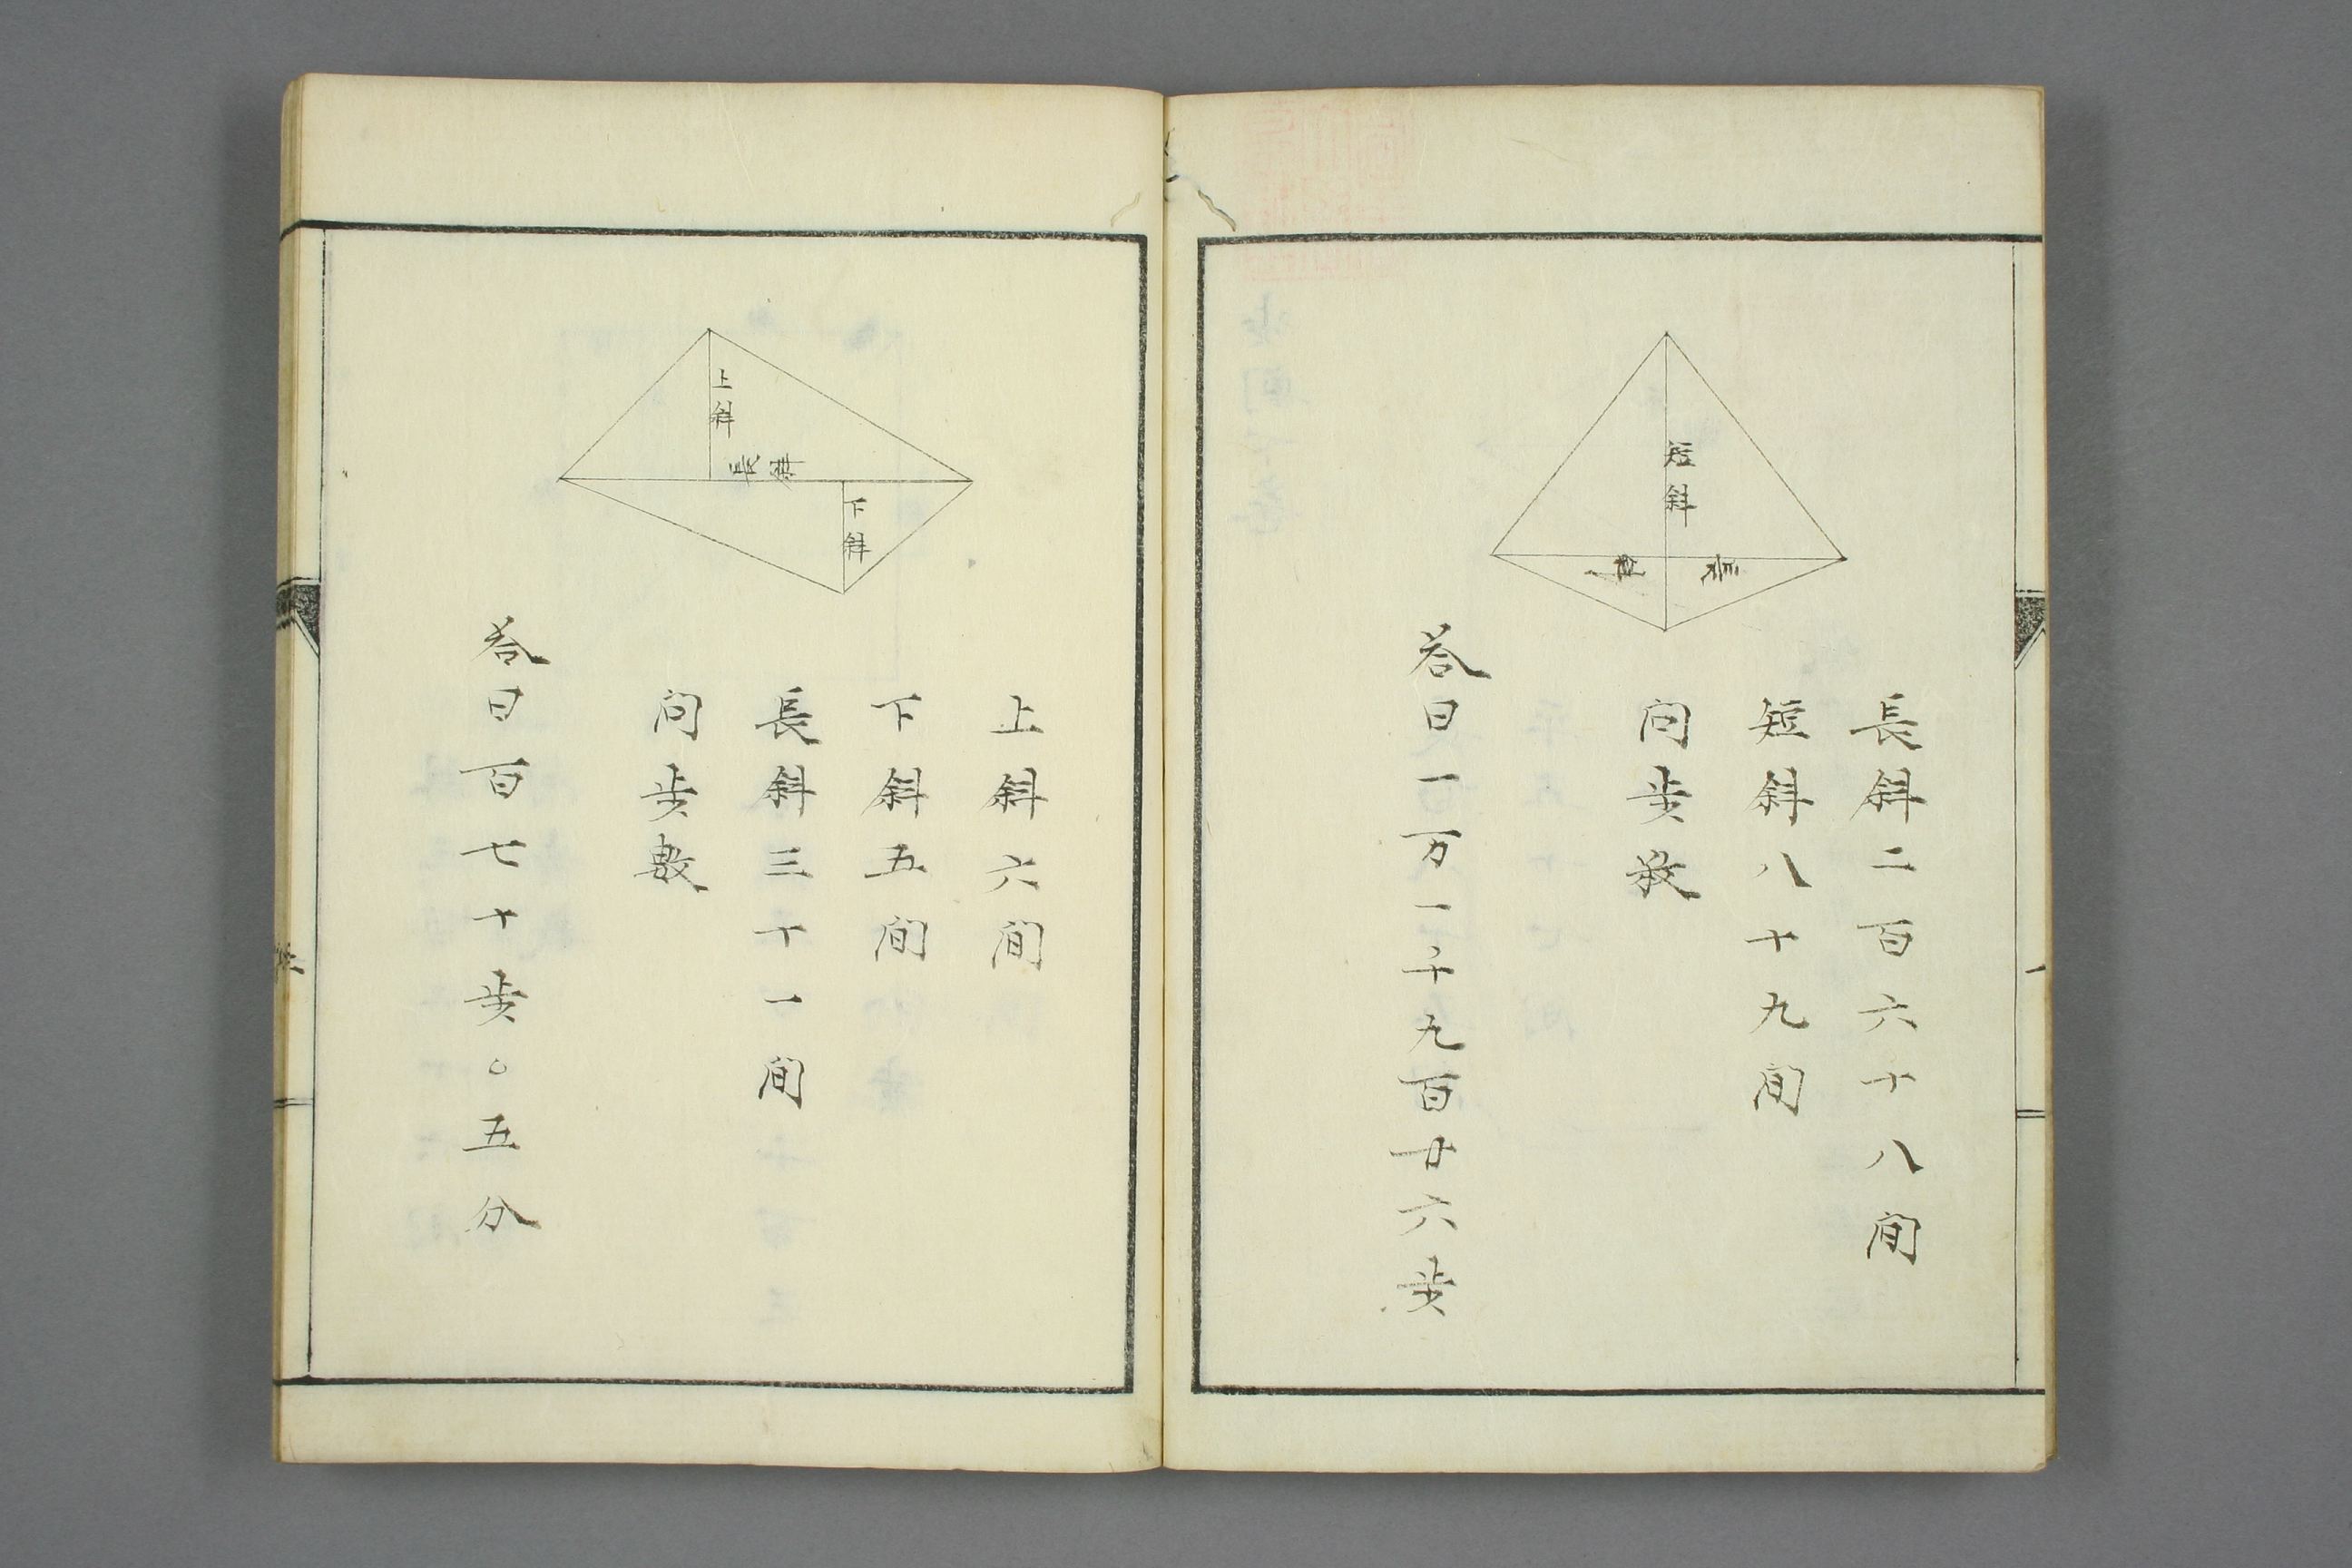 短斜
長斜
長斜二百六十八間
短斜八十九間
問歩数
答曰一万一千九百廿六歩
上斜
長斜
下斜
上斜六間
下斜五間
長斜三十一間
問歩數
答曰百七十歩〇五分